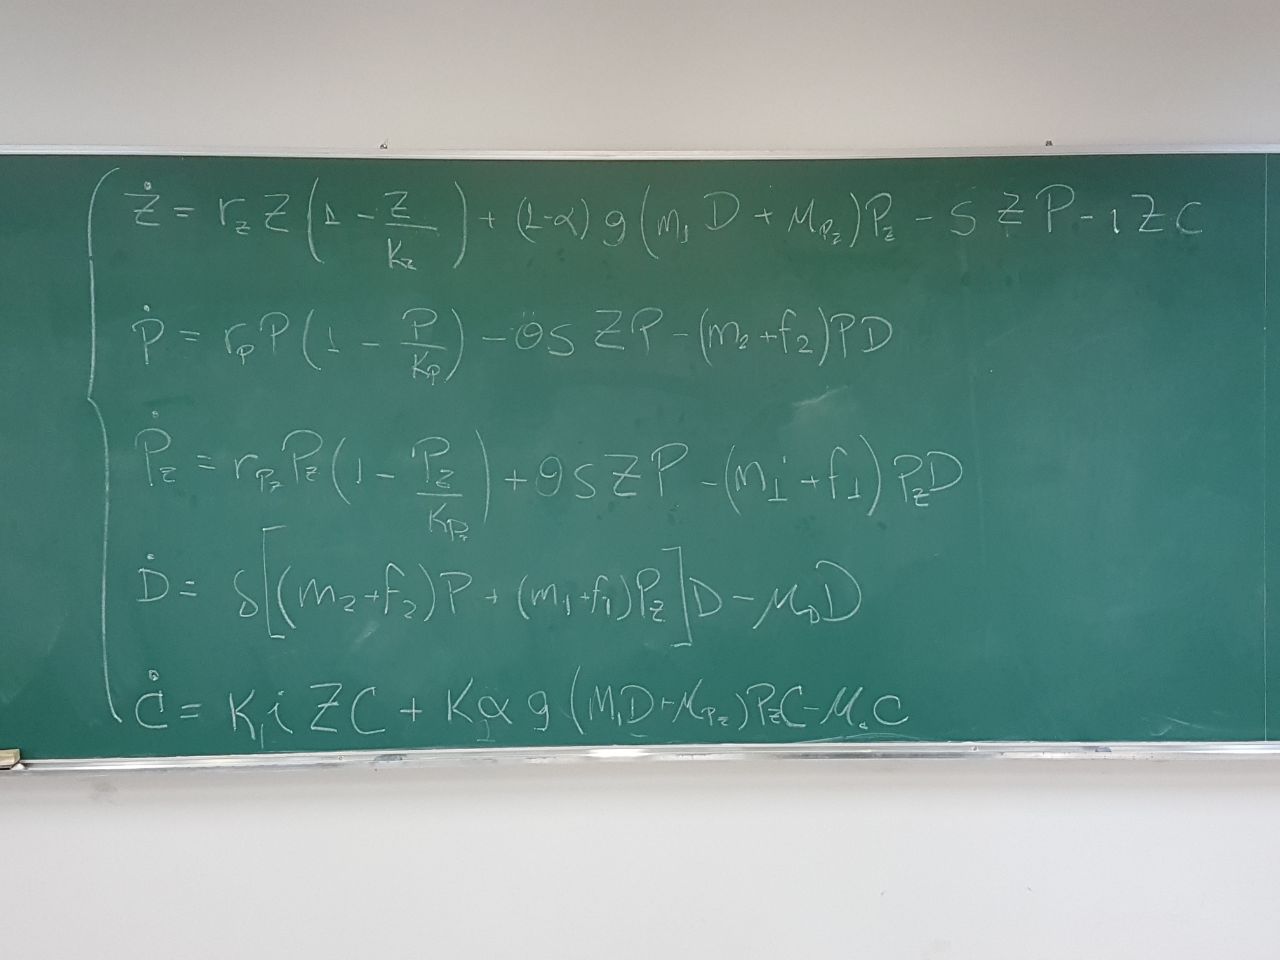 Ż = r_z Z (1 - Z/K_z) + (1-α) g (m_1 D + μ_{P_z}) P_z - S Z P - i Z C
Ṗ = r_p P (1 - P/K_p) - θ S Z P - (m_2 + f_2) P D
Ṗ_z = r_{P_z} P_z (1 - P_z/K_{P_z}) + θ S Z P - (m_1 + f_1) P_z D
Ḋ = δ [(m_2 + f_2) P + (m_1 + f_1) P_z] D - μ_D D
Ċ = K_1 i Z C + K_2 α g (M_1 D + μ_{P_z}) P_z C - μ_c C